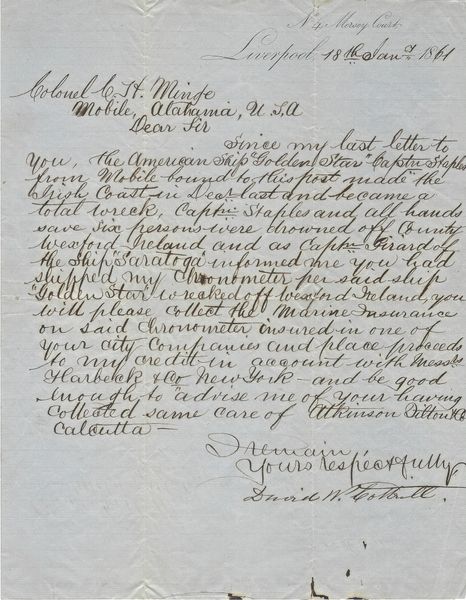 No 4 Mersey Court,
Liverpool, 18th Jany 1861
Colonel C. H. Minge
Mobile, Alabama, U.S.A
Dear Sir
Since my last letter to
You, the American Ship "Golden Star" Captn Staples
from Mobile bound to this port made the
Irish Coast in Decr last and became a
total wreck, Captn Staples and all hands
save six persons were drowned off County
Wexford Ireland and as Captn Girard of
the Ship "Saratoga" informed me you had
shipped my Chronometer per said ship
"Golden Star" wrecked off Wexford Ireland, you
will please collect the Marine Insurance
on said Chronometer insured in one of
your city Companies and place proceeds
to my credit in account with Messrs
Harbeck & Co New York - and be good
enough to advise me of your having
collected same care of Atkinson Tilton & Co
Calcutta -
I remain
Yours respectfully
David W.